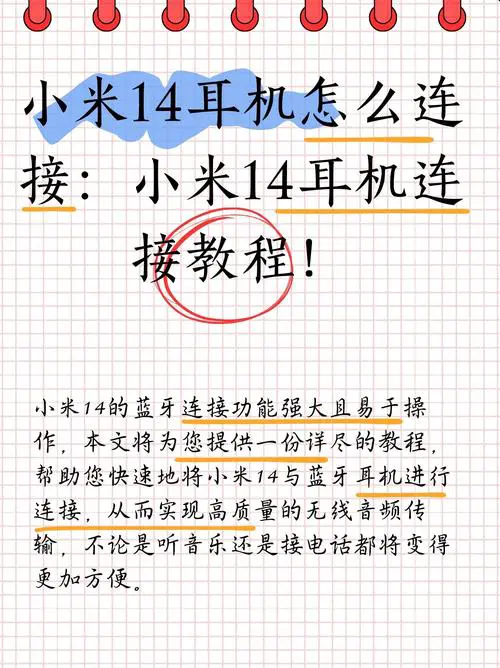 小米14耳机怎么连
接：小米14耳机连
接教程！
小米14的蓝牙连接功能强大且易于操
作，本文将为您提供一份详尽的教程，
帮助您快速地将小米14与蓝牙耳机进行
连接，从而实现高质量的无线音频传
输，不论是听音乐还是接电话都将变得
更加方便。